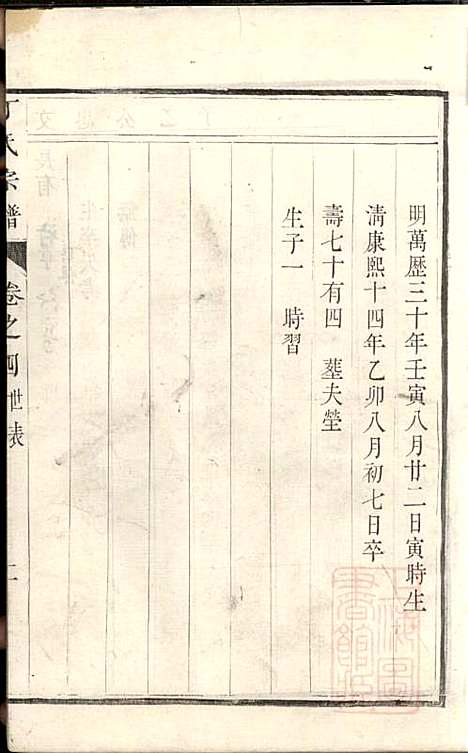 明萬歷三十年壬寅八月廿二日寅時生
淸康熙十四年乙卯八月初七日卒
壽七十有四　塟夫塋
生子一　時習
氏宗譜　卷之四　世表